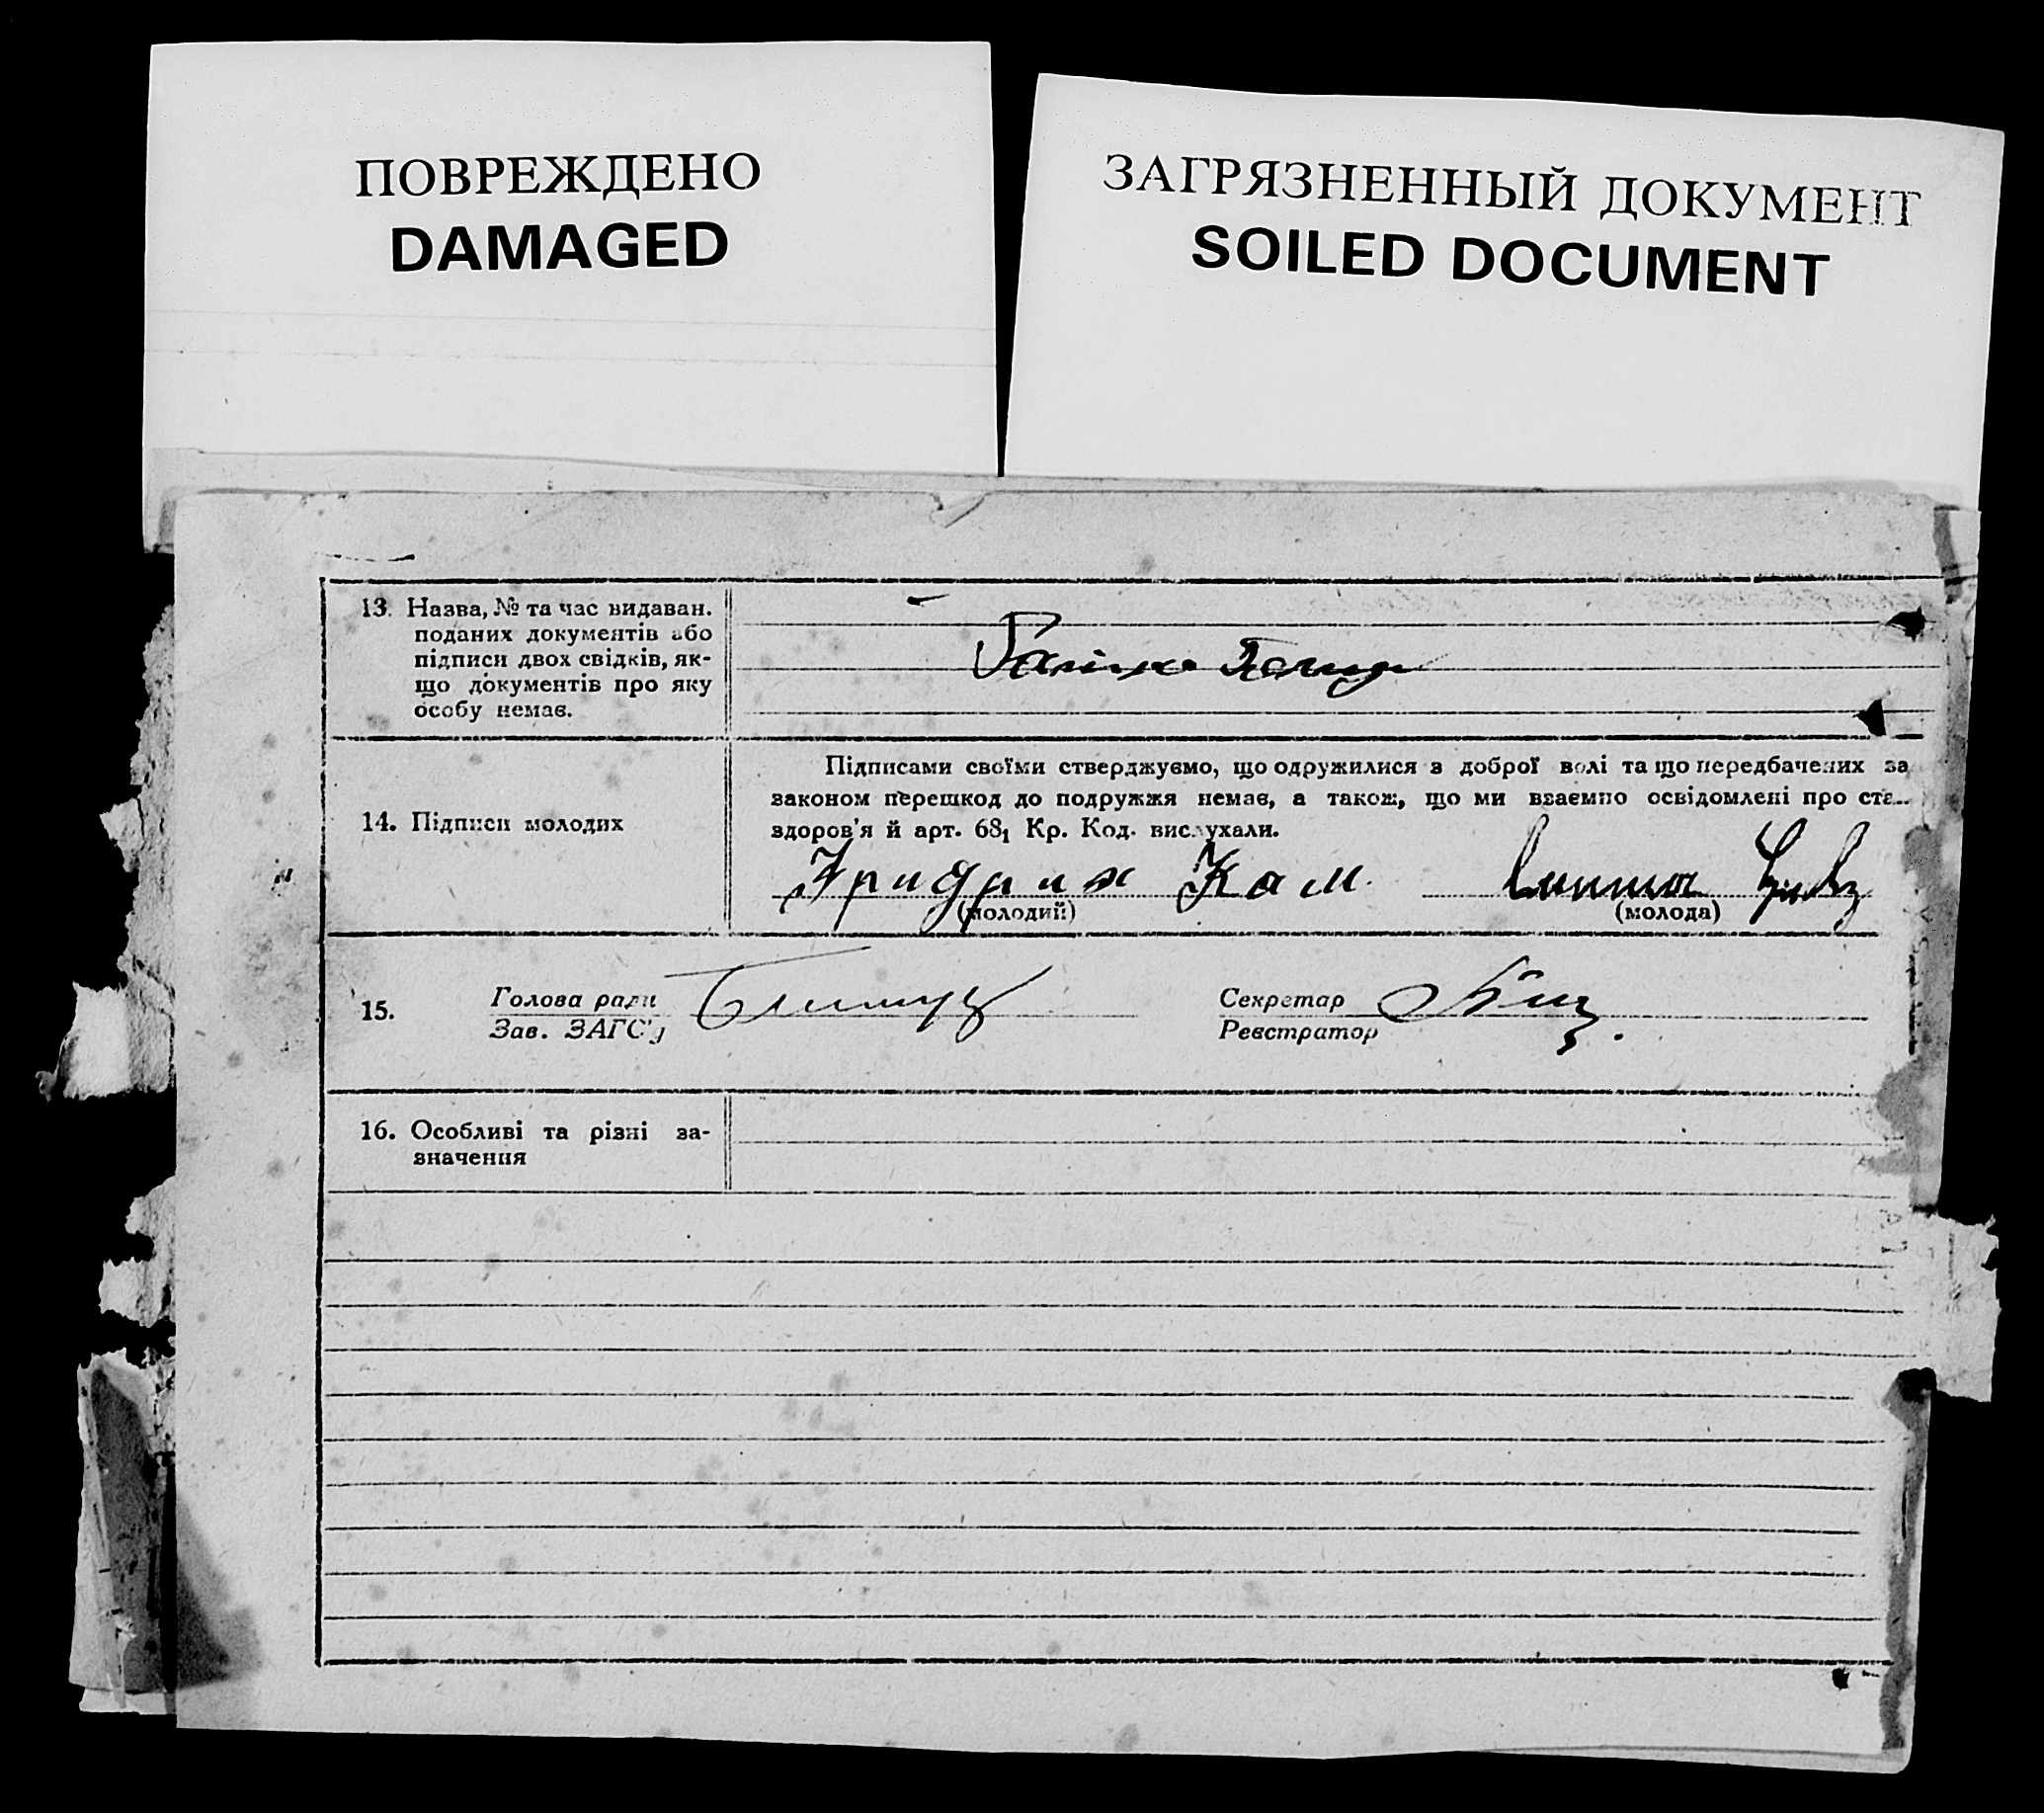 ПОВРЕЖДЕНО
DAMAGED
ЗАГРЯЗНЕННЫЙ ДОКУМЕНТ
SOILED DOCUMENT
13. Назва, № та час видаван.
поданих документів або
підписи двох свідків, як-
що документів про яку
особу немає.
14. Підписи молодих
Підписами своїми стверджуємо, що одружилися з доброї волі та що передбачених за
законом перешкод до подружжя немає, а також, що ми взаємно освідомлені про ста
здоров'я й арт. 68₁ Кр. Код. вислухали.
Фридрих Кам
(молодий)
(молода)
15.
Голова ради
Зав. ЗАГС'у
Секретар
Реєстратор
16. Особливі та різні за-
значення